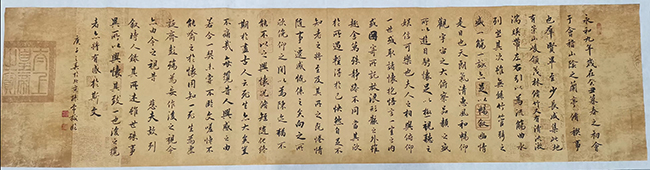 永和九年歲在癸丑暮春之初會
于會稽山陰之蘭亭脩禊事
也羣賢畢至少長咸集此地
有崇山峻領茂林脩竹又有清流激
湍暎帶左右引以為流觴曲水
列坐其次雖無絲竹管弦之
盛一觴一詠亦足以暢敘幽情
是日也天朗氣清惠風和暢仰
觀宇宙之大俯察品類之盛
所以遊目騁懷足以極視聽之
娛信可樂也夫人之相與俯仰
一世或取諸懷抱悟言一室之內
或因寄所託放浪形骸之外雖
趣舍萬殊靜躁不同當其欣
於所遇暫得於己快然自足不
知老之將至及其所之既惓情
隨事遷感慨係之矣向之所
欣俛仰之間以為陳迹猶不
能不以之興懷況脩短隨化終
期於盡古人云死生亦大矣豈
不痛哉每攬昔人興感之由
若合一契未嘗不臨文嗟悼不
能喻之於懷固知一死生為虛
誕齊彭殤為妄作後之視今
亦由今之視昔 悲夫故列
敘時人錄其所述雖世殊事
異所以興懷其致一也後之攬
者亦將有感於斯文
庚子